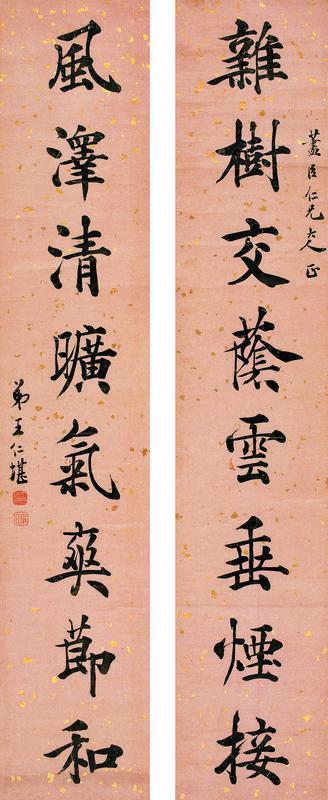 雜樹交蔭雲垂煙接
藎臣仁兄大人正
風澤清曠氣爽節和
弟王仁堪